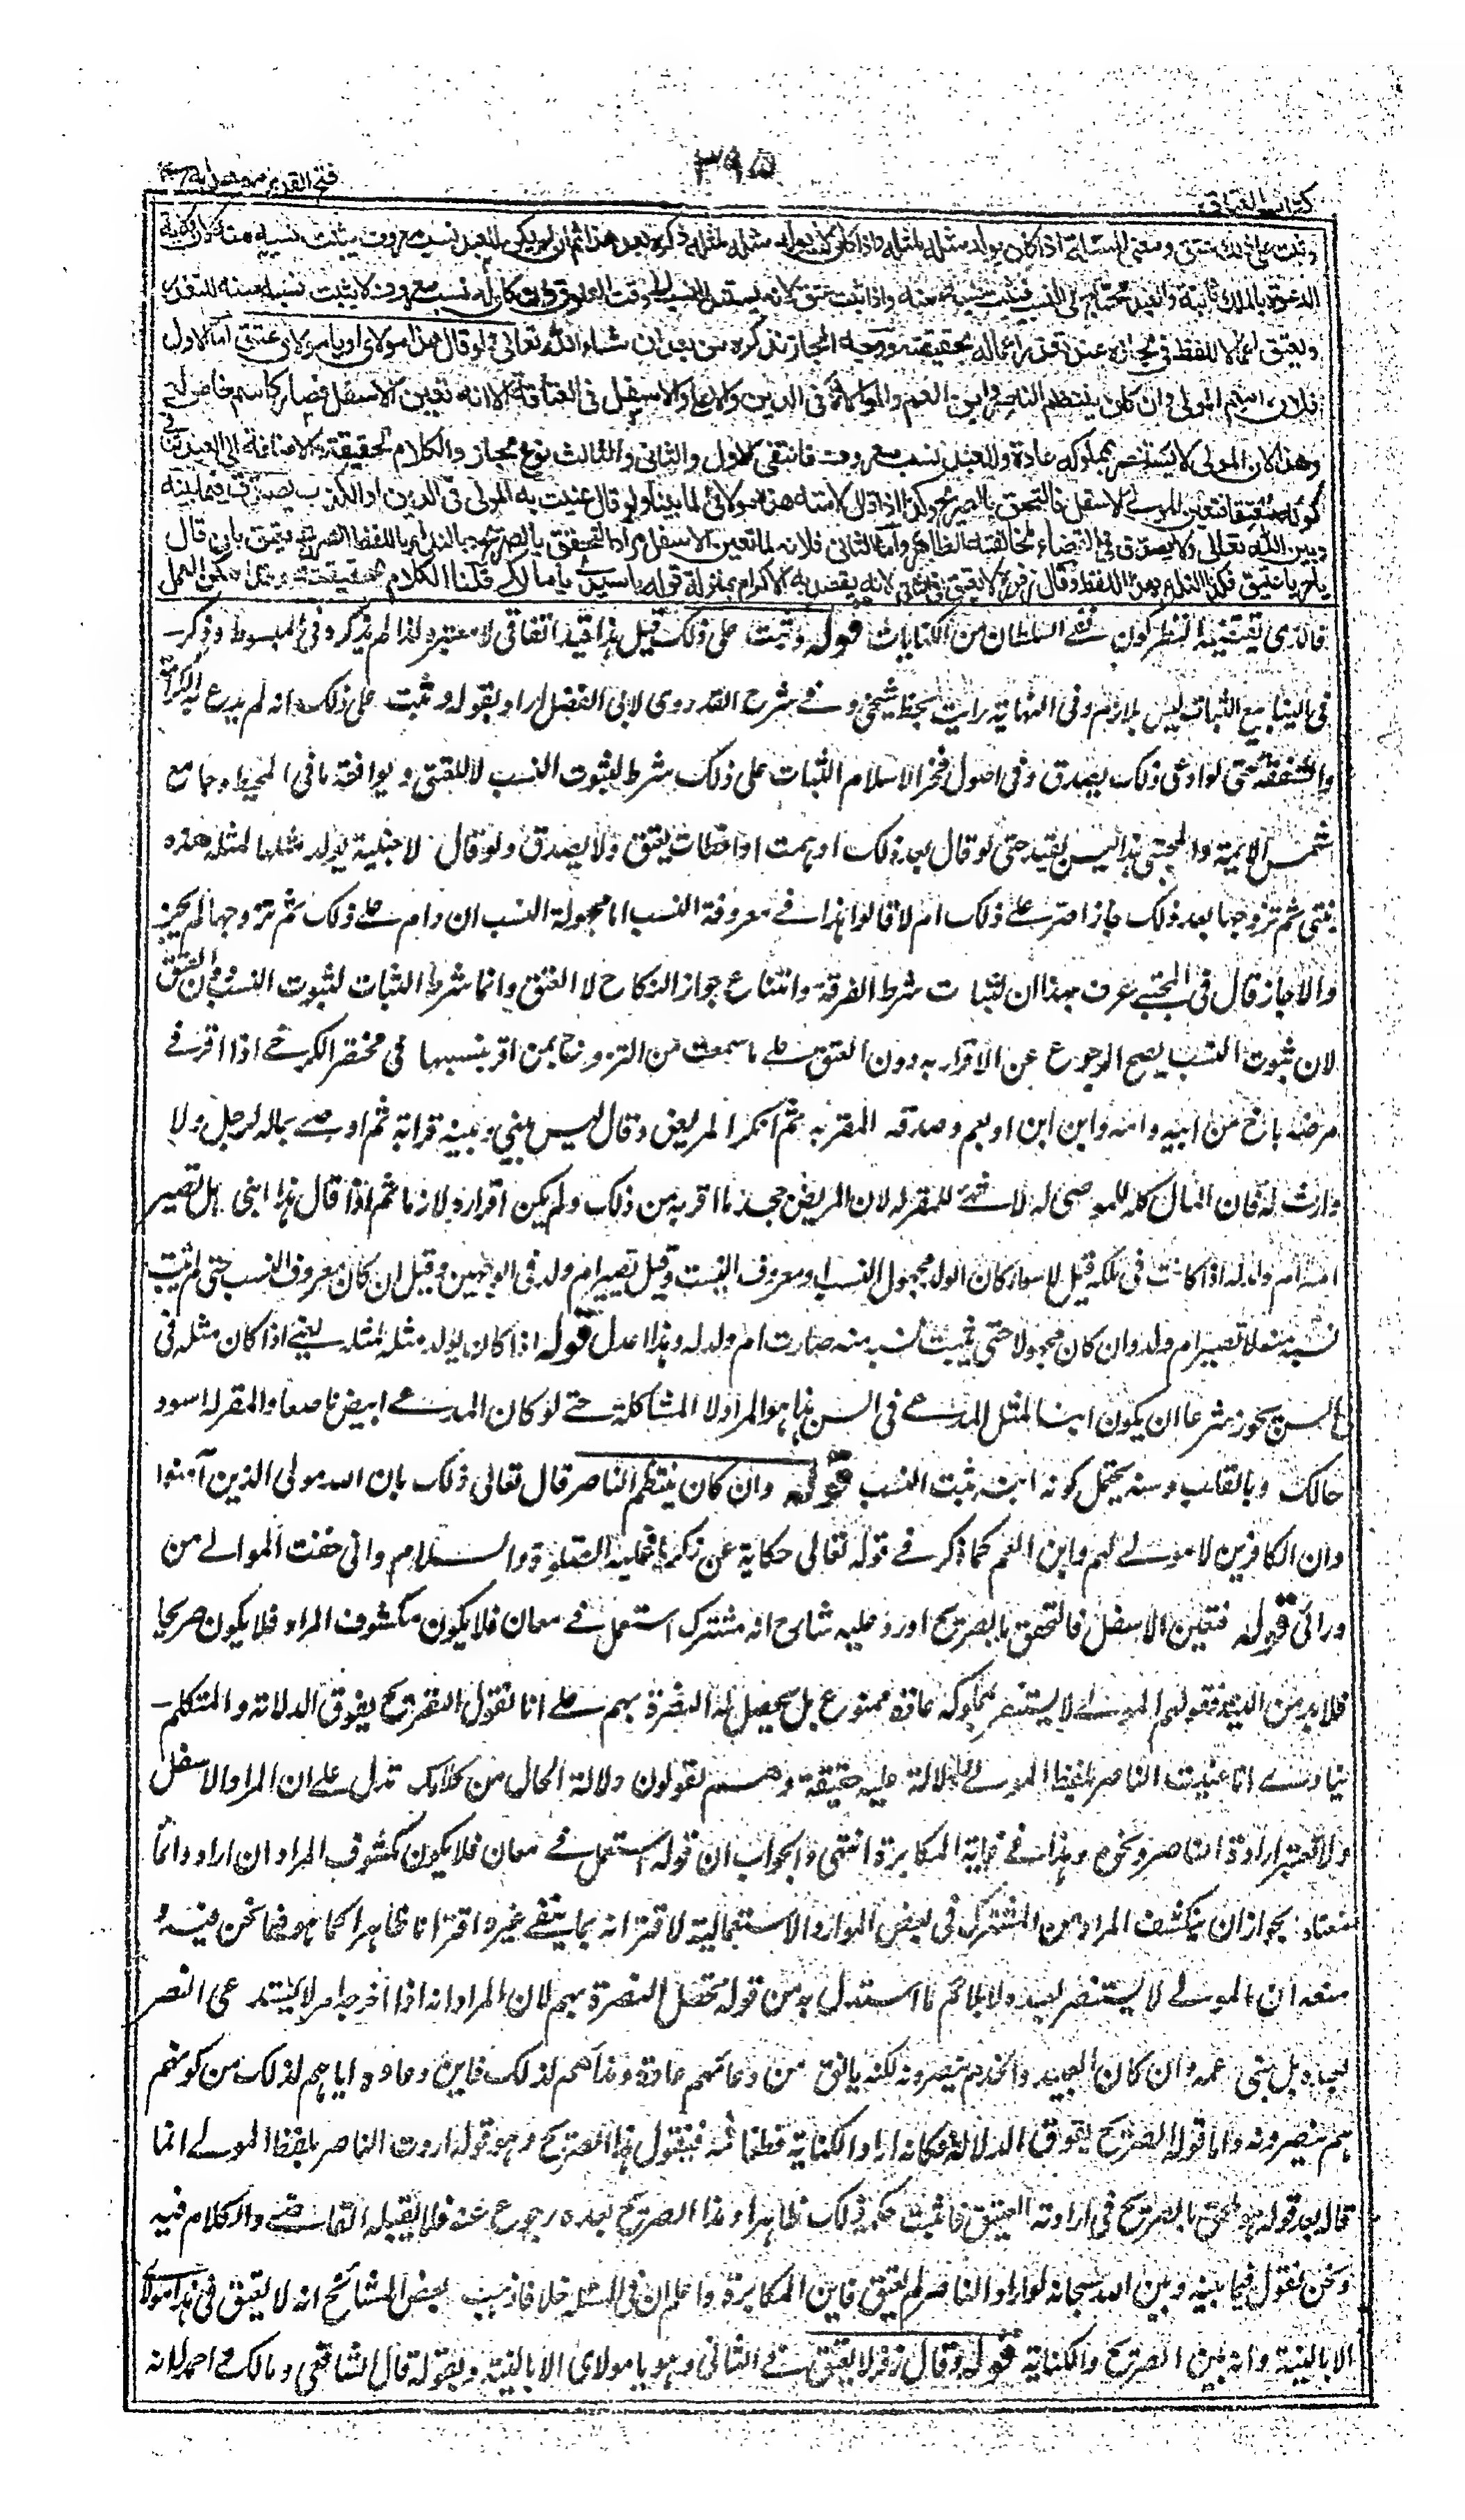 ٣٩٥
كتاب العتاق
فتح القدير مع هدايه
وثبت على ذلك عتق ومعنى المسئلة اذا كان يولد مثله لمثله فاذا كان لا يولد مثله لمثله ذكره بعد هذا ثم ان لم يكن للعبد نسب معروف يثبت نسبه منه لان ولاية
الدعوة بالملك ثابتة والعبد محتاج الى النسب فيثبت نسبه منه واذا ثبت عتق لانه يستند النسب الى وقت العلوق وان كان له نسب معروف لا يثبت نسبه منه للتعذر
ويعتق اعمالا للفظ في مجازه عند تعذر اعماله بحقيقته ووجه المجاز نذكره من بعد ان شاء الله تعالى ولو قال هذا مولاى او يا مولاى عتق اما الاول
فلان اسم المولى وان كان ينتظم الناصر وابن العم والموالاة في الدين والاعلى والاسفل في العتاقة الا انه تعين الاسفل فصار كاسم خاص له
وهذا لان المولى لا يستنصر بمملوكه عادة وللعبد نسب معروف فانتفى الاول والثاني والثالث نوع مجاز والكلام لحقيقته والاضافة الى العبد تنافي
كونه معتقا فتعين المولى الاسفل فالتحق بالصريح وكذا اذا قال لامته هذه مولاتى لما بينا ولو قال عنيت به المولى في الدين او الكذب يصدق فيما بينه
وبين الله تعالى ولا يصدق في القضاء لمخالفته الظاهر واما الثاني فلانه لما تعين الاسفل مرادا التحق بالصريح وبالنداء باللفظ الصريح يعتق بان قال
يا حر يا عتيق فكذا النداء بهذا اللفظ وقال زفر لا يعتق في الثاني لانه يقصد به الاكرام بمنزلة قوله يا سيدى يا مالكى قلنا الكلام لحقيقته وقد امكن العمل
فالذى يقتضيه النظر كون نفى السلطان من الكنايات قوله وثبت على ذلك قيل هذا قيد اتفاقى لا معتبر ولذا لم يذكره فى المبسوط وذكر
فى الينابيع الثبات ليس بلازم وفى النهاية رايت بخط شيخى وفى شرح القدورى لابى الفضل اراد بقوله وثبت على ذلك انه لم يدع به الكرامة
والشفقة حتى لو ادعى ذلك يصدق وفى اصول فخر الاسلام الثبات على ذلك شرط لثبوت النسب لا للعتق ويوافقه ما فى المحيط وجامع
شمس الائمة والمجتبى هذا ليس بقيد حتى لو قال بعد ذلك اوهمت او اخطات يعتق ولا يصدق ولو قال لاجنبية يولد مثلها لمثله هذه
بنتى ثم تزوجها بعد ذلك جاز اصر على ذلك ام لا قالوا هذا فى معروفة النسب اما مجهولة النسب ان دام على ذلك ثم تزوجها لم يجز
والا جاز قال فى المجتبى عرف بهذا ان لثبات شرط الفرقة وامتناع جواز النكاح لا العتق وانما شرط الثبات لثبوت النسب دون العتق
لان ثبوت النسب يصح الرجوع عن الاقرار به دون العتق على ما سمعت من التزوج بمن اقر بنسبها فى مختصر الكرخى اذا اقر فى
مرضه باخ من ابيه وامه وابن ابن او بعم وصدقه المقر به ثم انكر المريض وقال ليس بينى وبينه قرابة ثم اوصى بماله لرجل ولا
وارث له فان المال كله للموصى له لا شئ للمقر له لان المريض جحد ما اقر به من ذلك ولم يكن اقراره لازما ثم اذا قال هذا ابنى هل تصير
امه ام ولد له اذا كانت فى ملكه قيل لا سواء كان الولد مجهول النسب او معروف النسب وقيل تصير ام ولد فى الوجهين وقيل ان كان معروف النسب حتى لم يثبت
نسبه منه لا تصير ام ولد وان كان مجهولا حتى يثبت نسبه منه صارت ام ولد له وهذا اعدل قوله اذا كان يولد مثله لمثله يعنى اذا كان مثله فى
السن يجوز شرعا ان يكون ابنا لمثل المدعى فى السن هذا هو المراد لا المشاكلة حتى لو كان المدعى ابيض ناصعا والمقر له اسود
حالك وبالقلب وسنه يحتمل كونه ابنه ثبت النسب قوله وان كان ينتظم الناصر قال تعالى ذلك بان الله مولى الذين آمنوا
وان الكافرين لا مولى لهم وابن العم كما ذكر فى قوله تعالى حكاية عن زكريا عليه الصلوة والسلام وانى خفت الموالى من
ورائى قوله فتعين الاسفل فالتحق بالصريح اورد عليه شارح انه مشترك استعمل فى معان فلا يكون مكشوف المراد فلا يكون صريحا
فلا بد من النية فقولهم المولى لا يستنصر بمملوكه عادة ممنوع بل يحصل له النصرة بهم على انا نقول الصريح يفوق الدلالة والمتكلم
ينادى انا عنيت الناصر بلفظ المولى دلالة عليه حقيقة وهم يقولون دلالة الحال من كلامك تدل على ان المراد الاسفل
ولا تعتبر ارادة الناصر ونحوه وهذا فى غاية المكابرة انتهى والجواب ان قوله استعمل فى معان فلا يكون مكشوف المراد ان اراد دائما
منعناه بجواز ان ينكشف المراد من المشترك فى بعض الموارد الاستعمالية لاقترانه بما ينفى غيره اقترانا ظاهرا كما هو فيما نحن فيه و
منعه ان المولى لا يستنصر بعبده لا يلائم ما استدل به من قوله تحصل النصرة بهم لان المراد انه اذا حزبه امر لا يستدعى النصر
بعبده بل بنى عمه وان كان العبيد والخدم ينصرونه لكنه يانف من دعائهم عادة وندائهم لذلك فاين دعاوه اياهم لذلك من كونهم
هم ينصرونه واما قوله الصريح يفوق الدلالة فكانه اراد الكناية فطغا قلمه فيقول هذا الصريح وهو قوله اردت الناصر بلفظ المولى انما
قال بعد قوله هو ملحق بالصريح فى ارادته العتيق فاثبت حكم ذلك ظاهرا وهذا الصريح بعده رجوع عنه فلا يقبله القاضى والكلام فيه
ونحن نقول فيما بينه وبين الله سبحانه لو اراد الناصر لم يعتق فاين المكابرة واعلم ان فى المسئلة خلافا ذهب بعض المشائخ انه لا يعتق فى هذا مولاى
الا بالنية وانه بين الصريح والكناية قوله وقال زفر لا يعتق فى الثانى وهو يا مولاى الا بالنية وبقوله قال الشافعى ومالك واحمد لانه